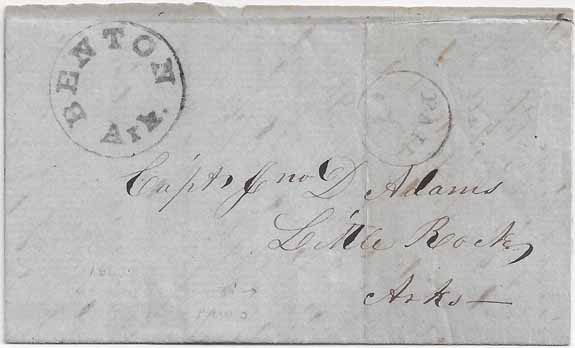 BENTON
Ark.
PAID
Capt. Jno D Adams
Little Rock,
Arks—
PAID 3